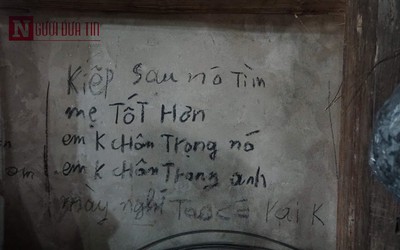 NGƯỜI ĐƯA TIN
Kiếp sau nó Tìm
mẹ Tốt Hơn
em K chân Trọng nó
em K chân Trọng anh
mày nghỉ Tao có Vai K